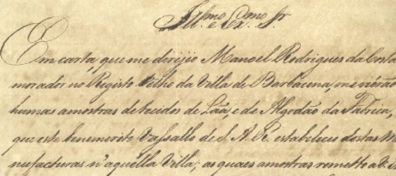 Ill.mo e Ex.mo Sr.
Em carta, que me dirijio Manoel Rodrigues da Costa
morador no Registo Velho da Villa de Barbacena, me vierão
humas amostras de tecidos de Lãa, e de Algodão da Fabrica,
que este benemerito Vassallo de S. A. R. estabeleceo destas Ma
nufacturas n'aquella Villa, as quaes amostras remetto a V.